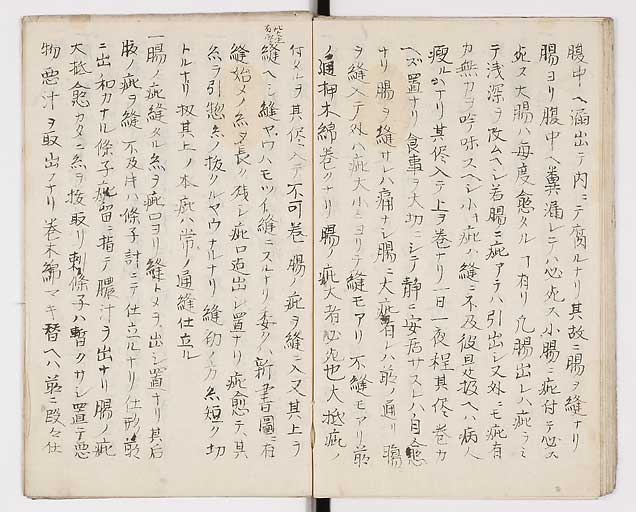 腹中ヘ漏出テ内ニテ腐ルナリ其故ニ腸ヲ縫ナリ
腸ヨリ腹中ヘ糞漏レテハ必死ス小腸ニ疵付テ必ス
死ス大腸ハ毎度愈タルヿ有リ凡腸出レハ疵ラミ
テ浅深ヲ改ムヘシ若腸ニ疵アラハ引出シ又外ニモ疵有
カ無カヲ吟味スヘシ小キ疵ハ縫ニ不及
瘦ルヿアリ其侭入テ上ヲ巻ナリ一日一夜程其侭巻カ
ヘズ置ナリ食事ヲ大切ニシテ静ニ安居サスレハ自愈
ナリ腸ヲ縫サレハ痛ナシ腸ニ大疵有レハ前ノ通リ腸
ヲ縫入テ外ハ疵大小ニヨリテ縫モアリ不縫モアリ前
ノ通押木綿巻クナリ腸ノ疵大者必死也大抵疵ノ
何タルヲ其侭入テ不可巻腸ノ疵ヲ縫ニ入又其上ヲ
縫ヘシ縫ヤウハモツイ縫ニスルナリ委クハ新書圖ニ有
縫始メノ糸ヲ長ク残シ疵口迠出シ置ナリ疵愈テ其
糸ヲ引惣糸ノ抜クルヤウナルナリ縫留ノ方ハ糸短ク切
トルナリ扨其上ノ本疵ハ常ノ通縫仕立ル
一腸ノ疵縫タル糸ヲ疵口ヨリ縫トメラ出シ置ナリ其后
腹ノ疵ヲ縫不及片ハ條子計ニテ仕立ルナリ仕形前
ニ出和カナル條子疵留ニ指テ膿汁ヲ出ナリ腸ノ疵
大抵愈カタニ糸ヲ抜取リ刺條子ハ暫クサシ置テ悪
物悪汁ヲ取出ノナリ巻木綿マキ替ヘハ前ニ段々仕